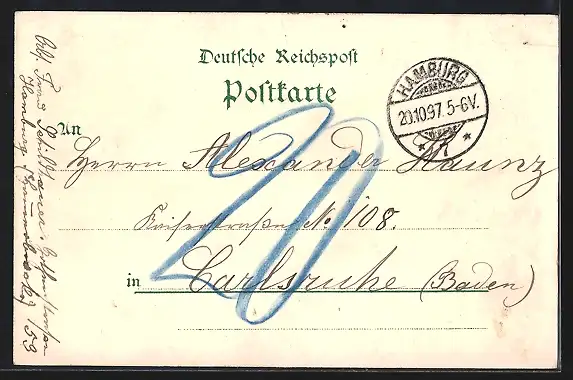 Deutsche Reichspost
Postkarte
HAMBURG
20.10.97. 5-6V.
An
Herrn Alexander Haunz
Kaiserstraße No 108.
in Carlsruhe (Baden)
20
Abs. Franz
Hamburg
53